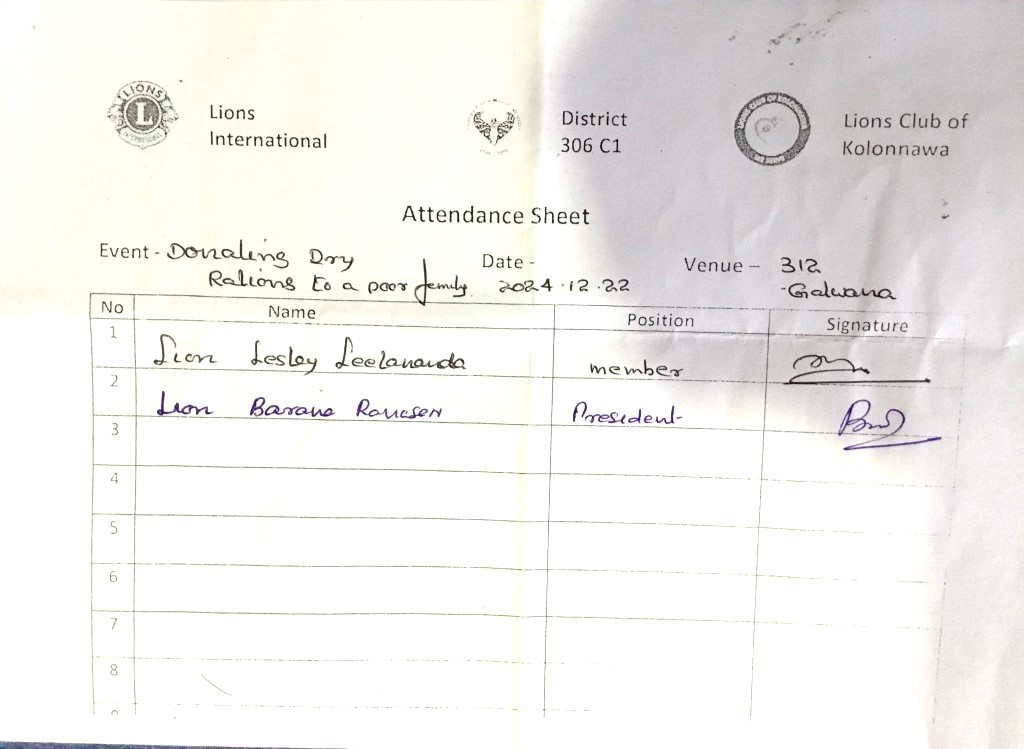 LIONS
L
INTERNATIONAL
Lions
International
District
306 C1
Lions Club of
Kolonnawa
Attendance Sheet
Event - Donating Dry
Rations to a poor family.
Date -
2024.12.22
Venue – 312
-Galwana
No Name Position Signature
1 Lion Lesley Leelananda member
2 Lion Barana Ranesen President
3
4
5
6
7
8